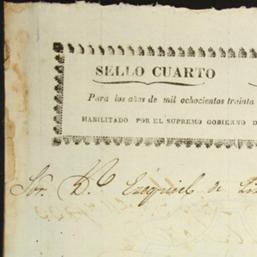 SELLO CUARTO
Para los años de mil ochocientos treinta
HABILITADO POR EL SUPREMO GOBIERNO D
Sor. D.ⁿ Ezequiel de